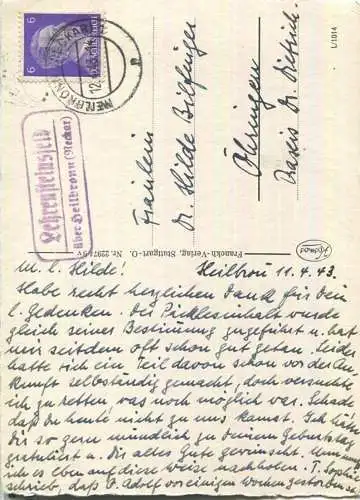 6
6
HEILBRONN (NECKAR)
12.
Lehrensteinsfeld
über Heilbronn (Neckar)
Fräulein
Dr. Hilde Bilfinger
Öhringen
Praxis Dr. Dietrich.
L/1014
Franckh-Verlag, Stuttgart-O. Nr.
M. l. Hilde! Heilbronn 11.4.43.
Habe recht herzlichen Dank für Dein
l. Gedenken. Der Picklesinhalt wurde
gleich seiner Bestimmung zugeführt u. hat
mir seitdem oft schon gut getan. Leider
hatte sich ein Teil davon schon vor der An-
kunft selbständig gemacht, doch versuchte
ich zu retten was noch möglich war. Schade
daß Du heute nicht zu uns kamst. Ich hätte
Dir so gern mündlich zu Deinem Geburtstag
gratuliert u. Dir alles Gute gewünscht. Nun muß
ich es eben auf diese Weise nachholen. T. Sophie
schrieb, daß O. Adolf vor einigen Wochen gestorben